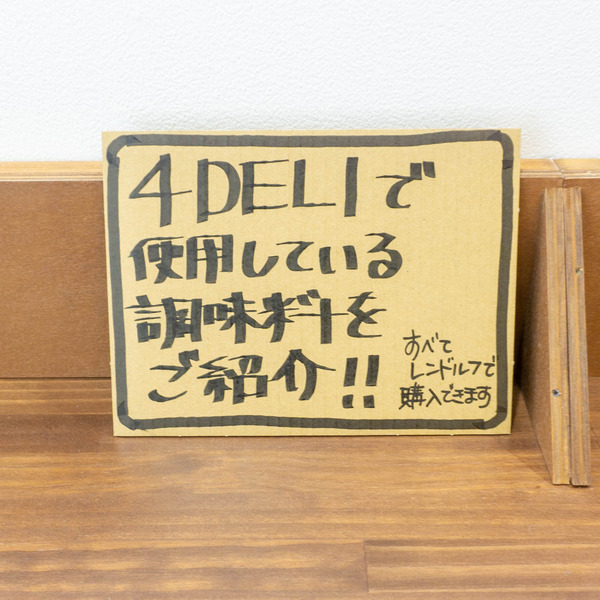 4DELIで
使用している
調味料を
ご紹介!!
すべて
レンドルフで
購入できます